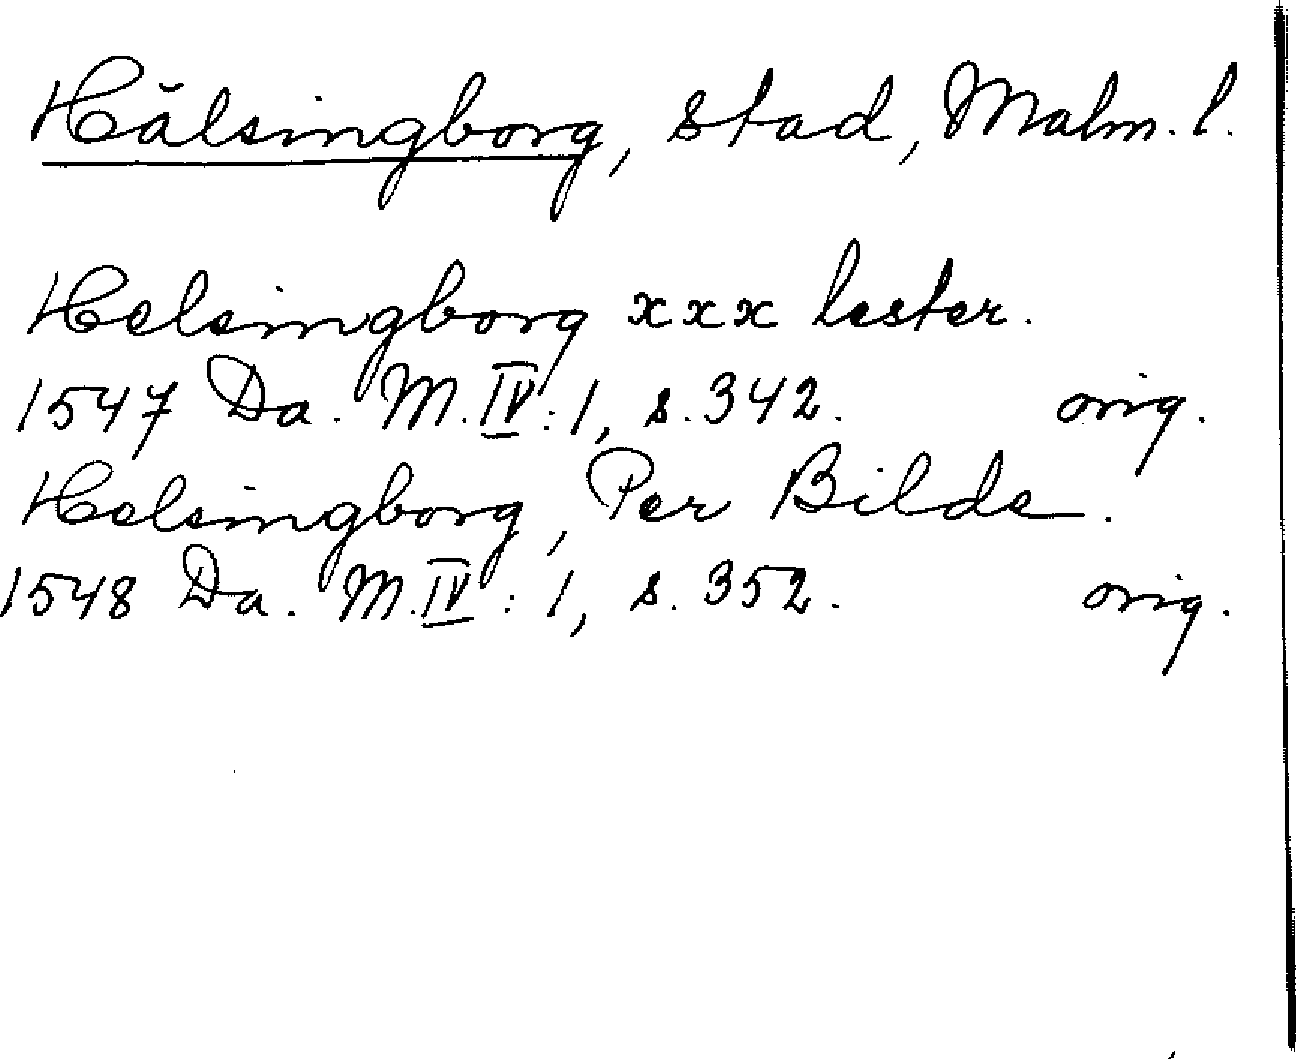 Hälsingborg, stad, Malm. l.
Helsingborg xxx lester.
1547 Da. M. IV: 1, s. 342. orig.
Helsingborg, Per Bilde.
1548 Da. M. IV: 1, s. 352. orig.